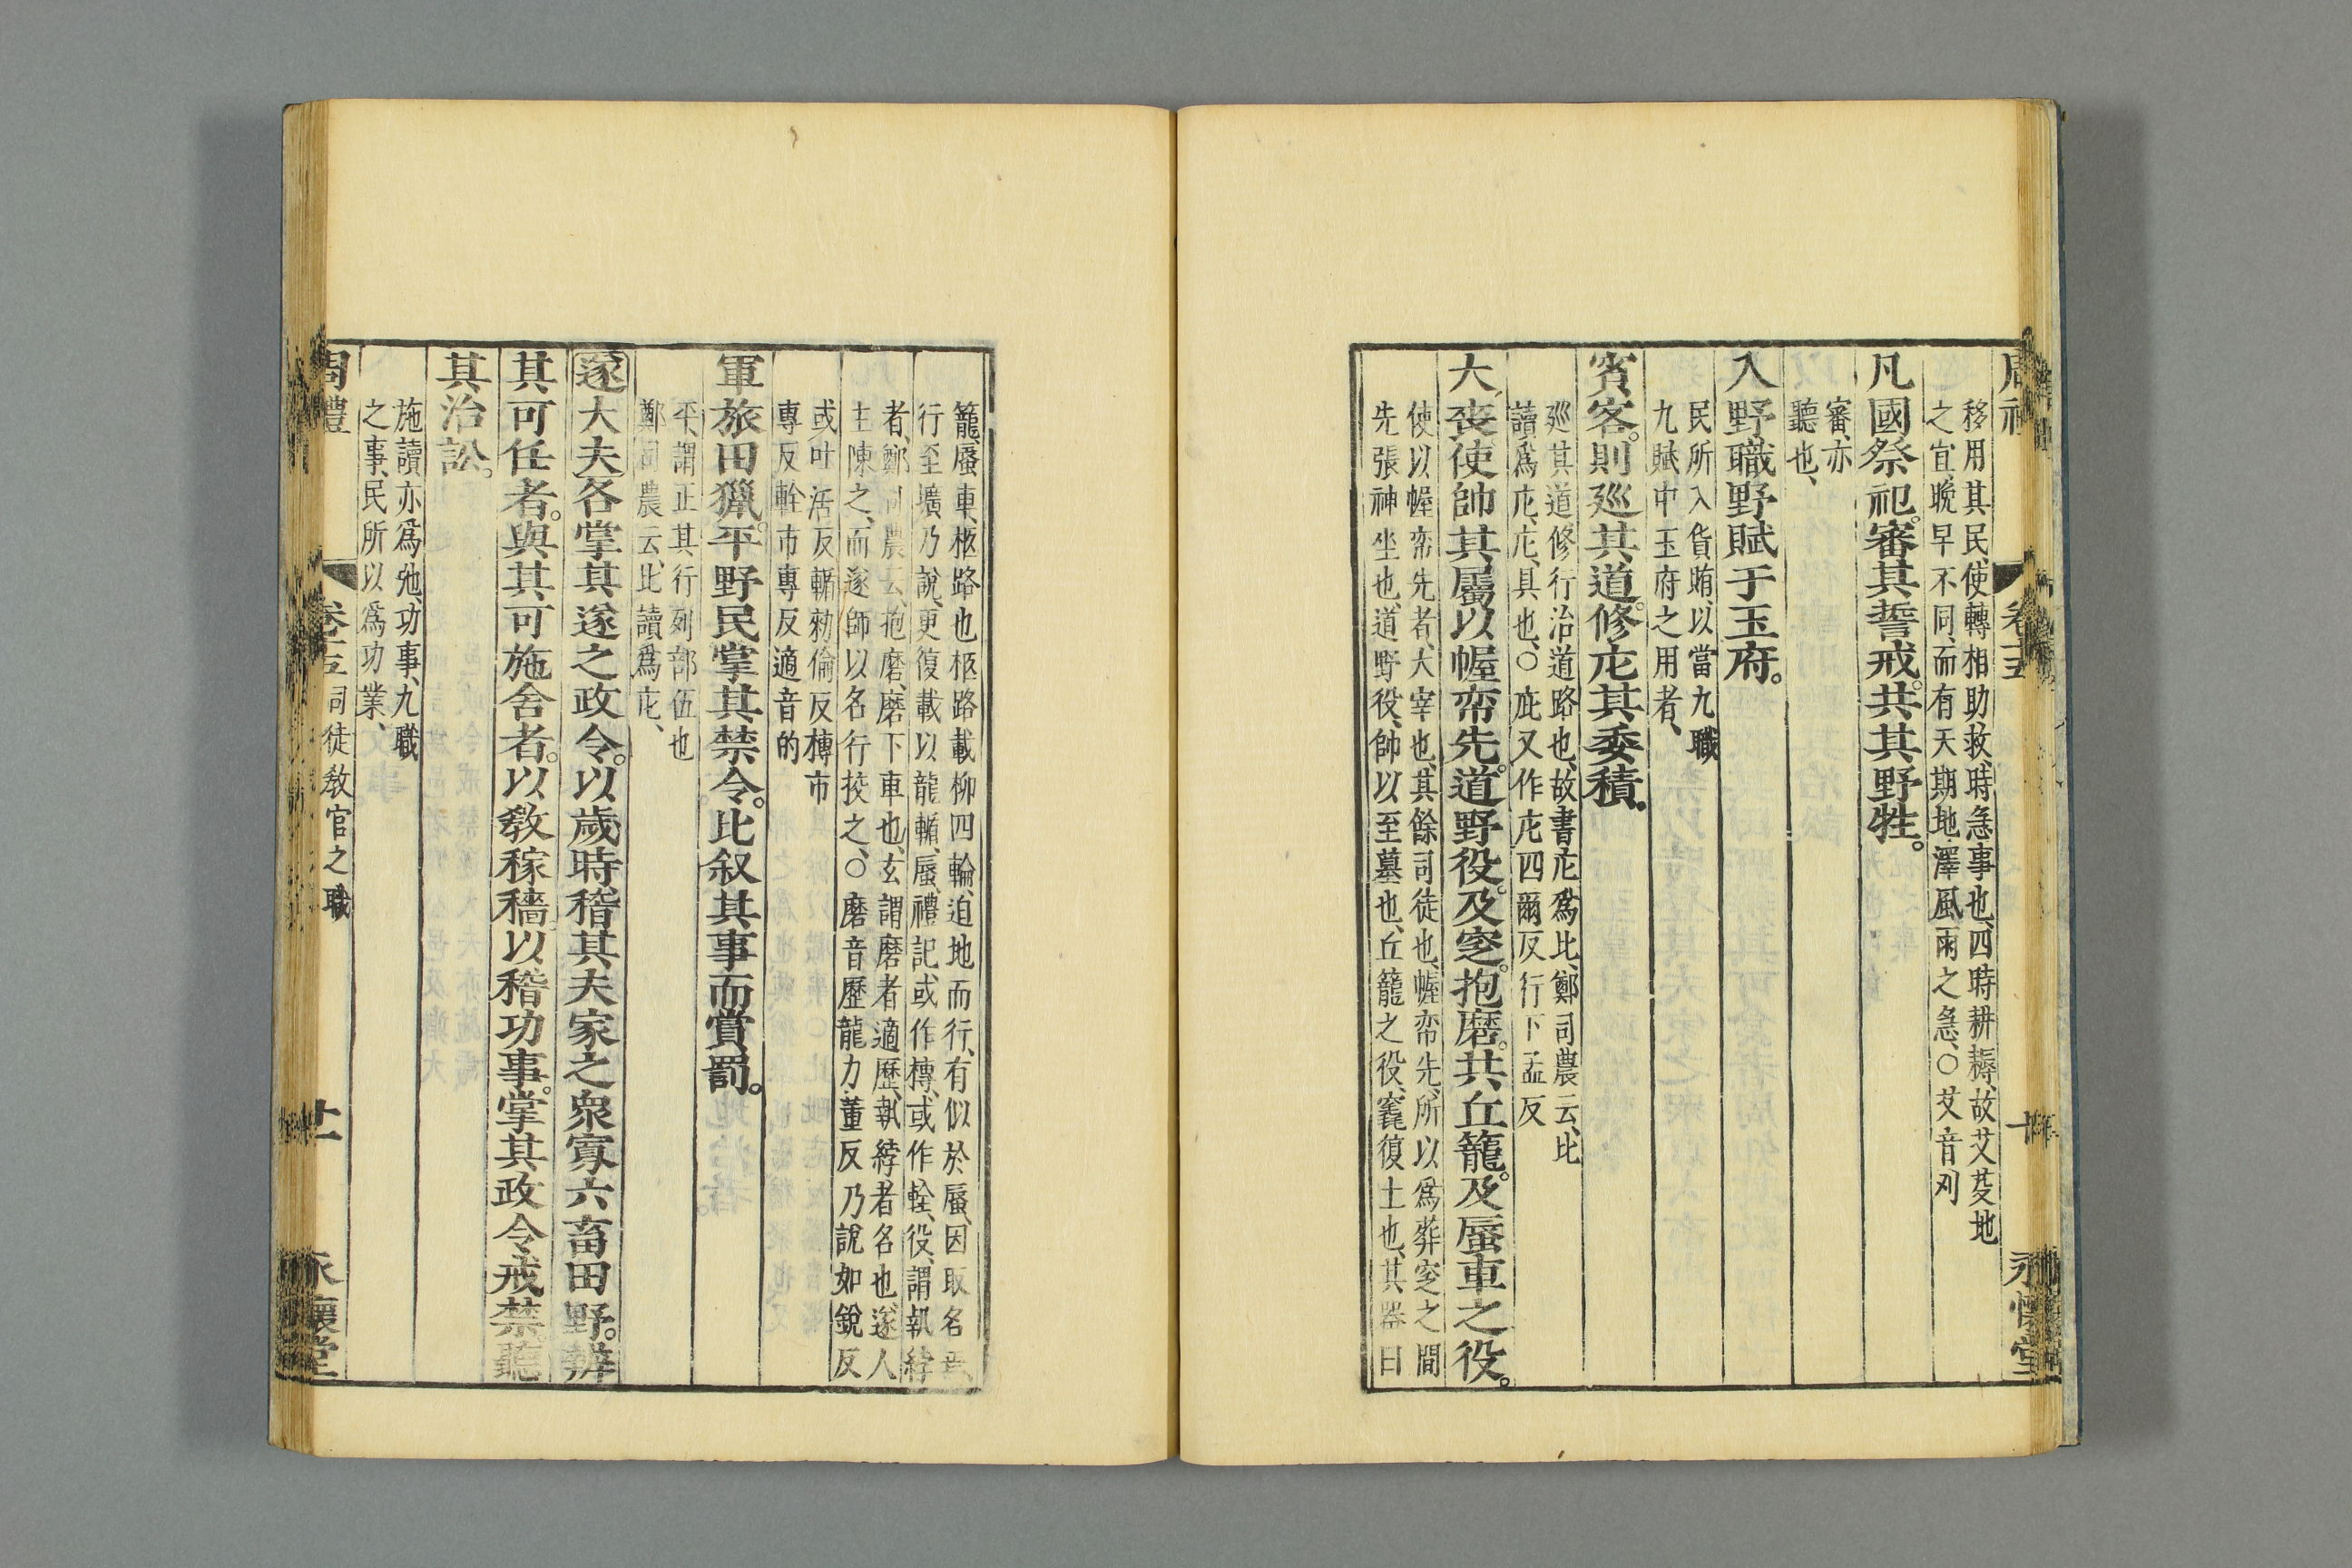 移用其民、使轉相助、救時急事也、四時耕耨、故艾芟地
之宜、晚早不同、而有天期地澤風雨之急、○艾音刈
凡國祭祀。審其誓戒。共其野牲。
審、亦
聽也、
入野職野賦于玉府。
民所入貨賄、以當九職
九賦中玉府之用者、
賓客。則廵其道。修庀其委積。
廵其道修、行治道路也、故書庀爲比、鄭司農云、比
讀爲庀、庀、具也、○庇又作庀四爾反行下孟反
大喪使帥其屬以幄帟先。道野役。及窆。抱磨。共丘籠。及蜃車之役。
使以幄帟先者、大宰也、其餘司徒也、幄帟先、所以爲葬窆之間
先張神坐也、道野役、帥以至墓也、丘籠之役、竁復土也、其器曰
籠、蜃車、柩路也、柩路載柳四輪、迫地而行、有似於蜃、因取名焉、
行至壙、乃說、更復載以龍輴、蜃、禮記或作槫、或作輇、役、謂執綍
者、鄭司農云、抱磨、磨下車也、玄謂磨者適歷、執綍者名也、遂人
主陳之、而遂師以名行挍之、○磨音歷籠力董反乃說如銳反
或吐活反輴勑倫反槫市
專反輇市專反適音的
軍旅田獵。平野民。掌其禁令。比叙其事而賞罰。
平、謂正其行列部伍也
鄭司農云、比讀爲庀、
遂大夫各掌其遂之政令。以歲時稽其夫家之衆寡六畜田野。辨
其可任者。與其可施舍者。以敎稼穡。以稽功事。掌其政令戒禁。聽
其治訟。
施讀亦爲弛、功事、九職
之事、民所以爲功業、
周禮 卷十五 司徒敎官之職 十一 永懷堂